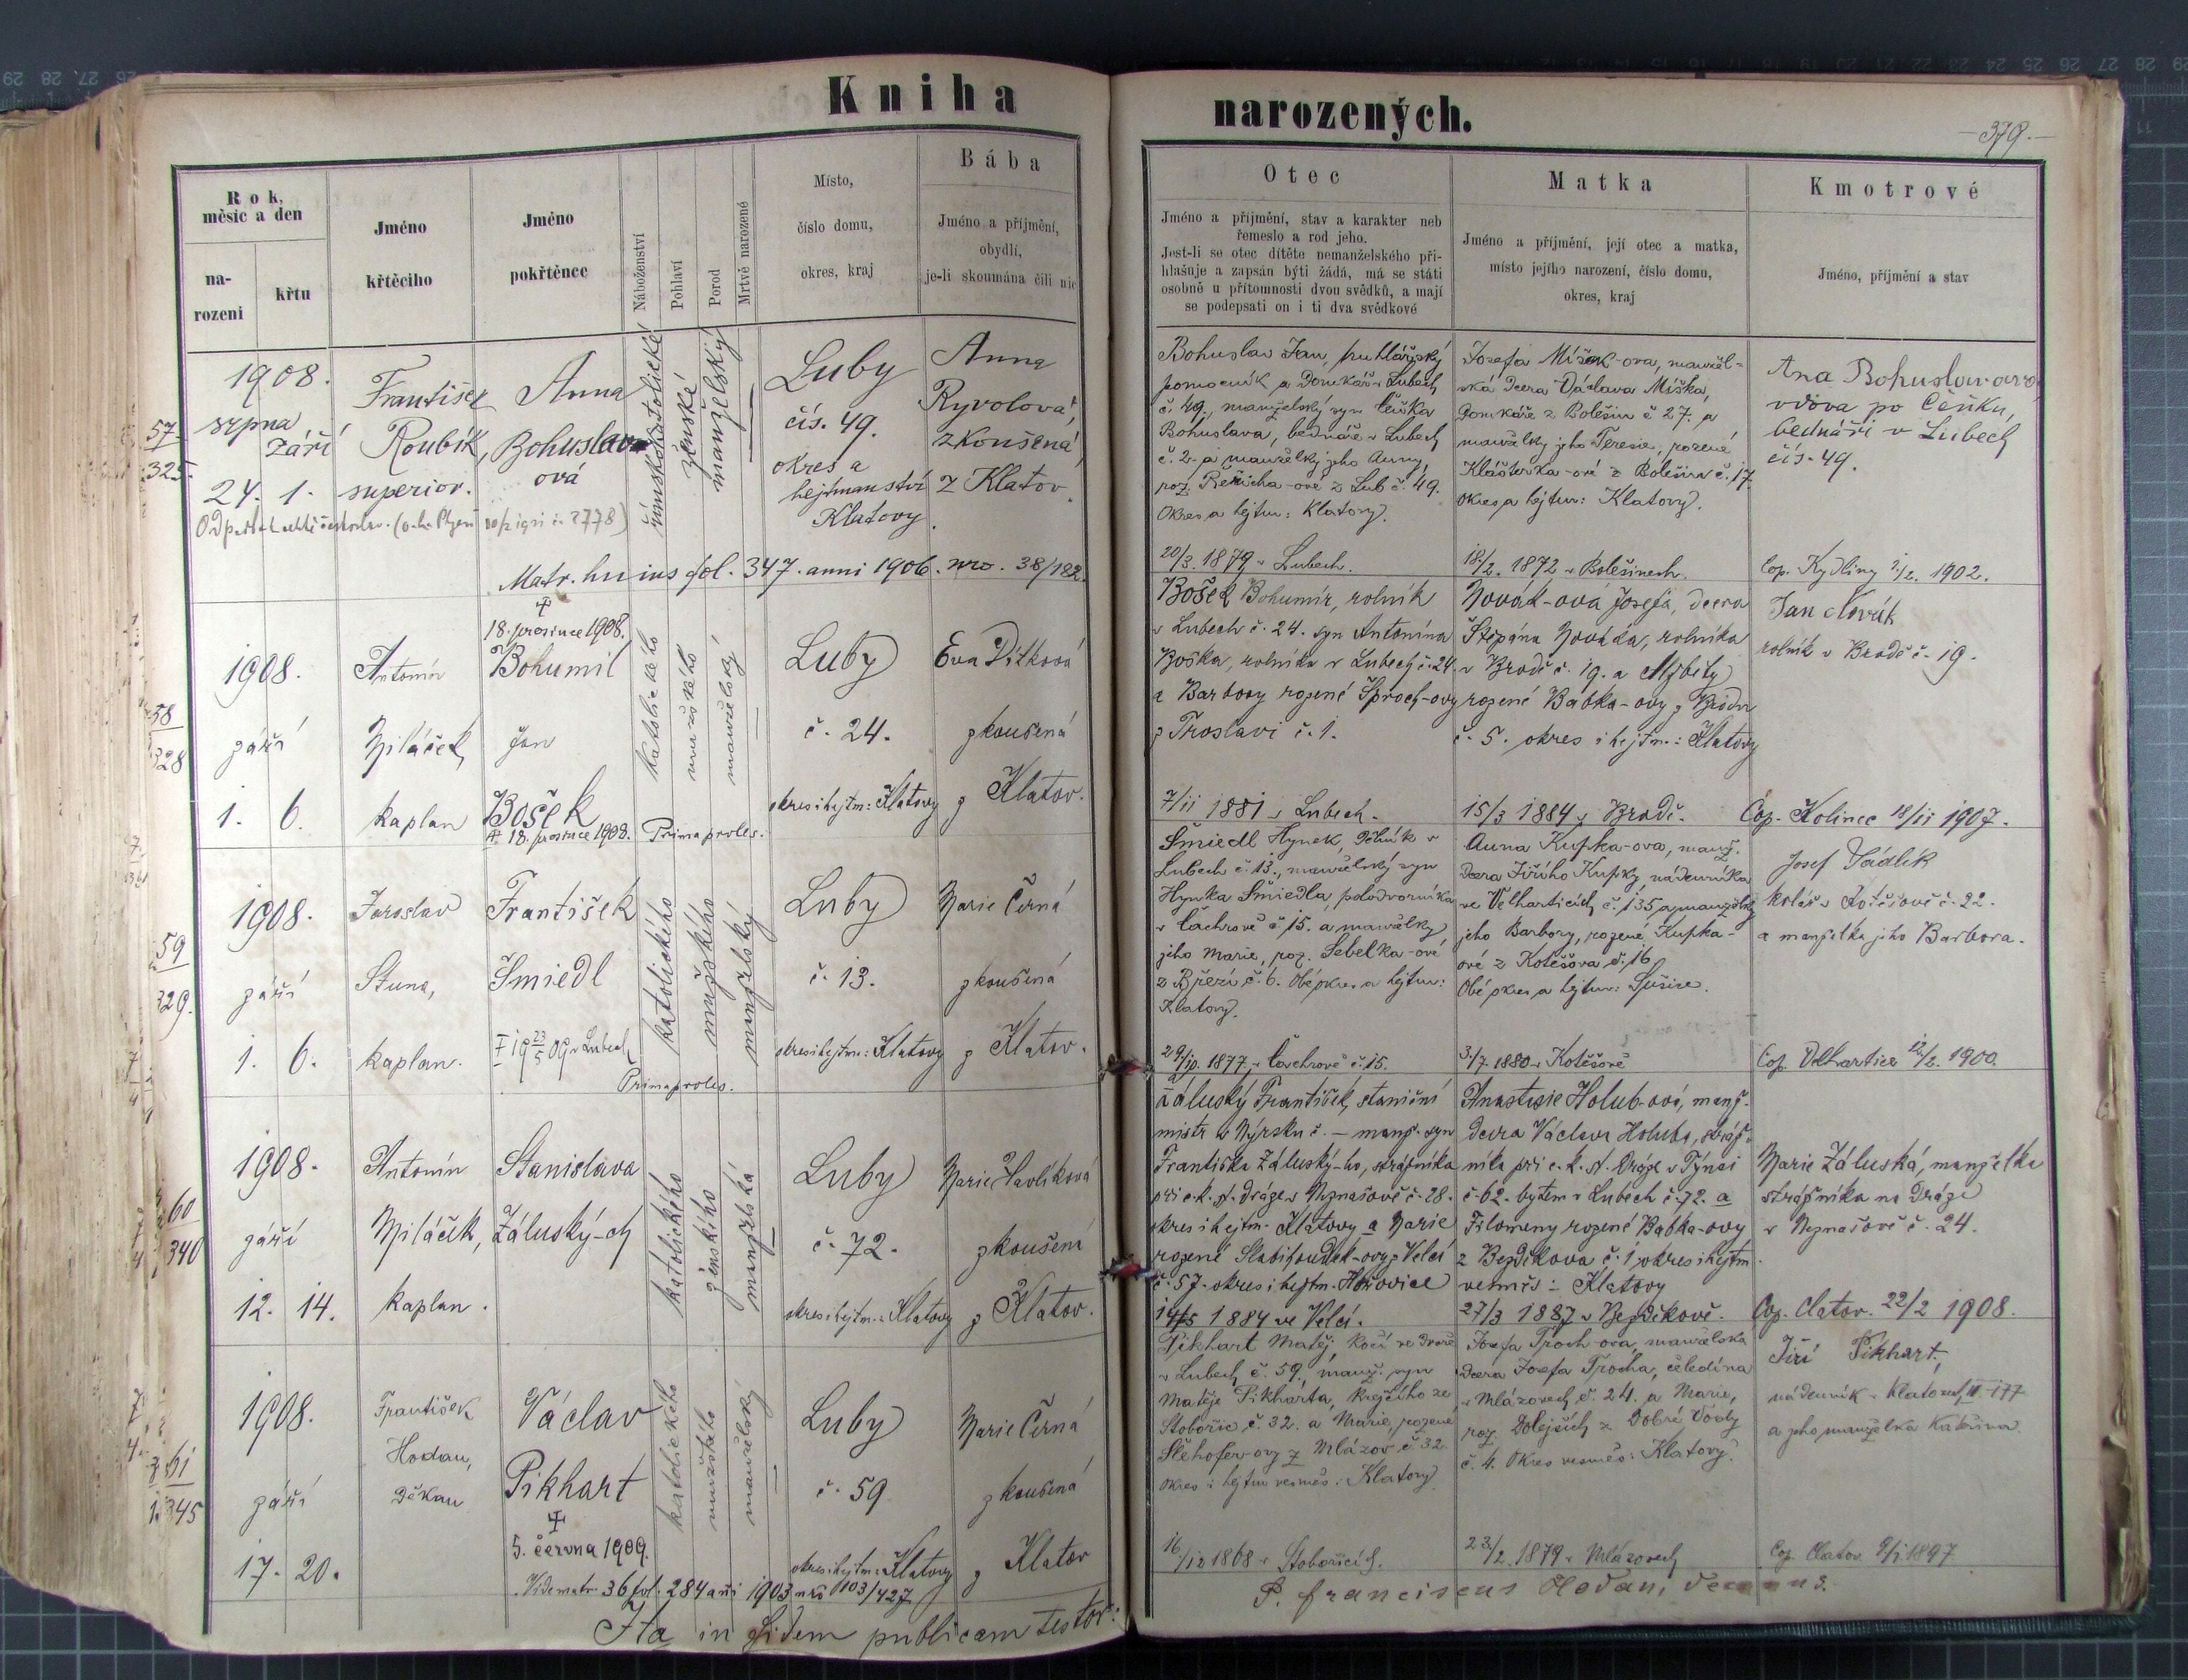 Kniha narozených.
379.
Rok, měsíc a den
narození
křtu
Jméno křtěcího
Jméno pokřtěnce
Náboženství
Pohlaví
Porod
Mrtvě narozené
Místo,
číslo domu,
okres, kraj
Bába
Jméno a příjmění,
obydlí,
je-li skoumána čili nic
Otec
Jméno a příjmění, stav a karakter neb
řemeslo a rod jeho.
Jest-li se otec dítěte nemanželského při-
hlašuje a zapsán býti žádá, má se státi
osobně u přítomnosti dvou svědků, a mají
se podepsati on i ti dva svědkové
Matka
Jméno a příjmění, její otec a matka,
místo jejího narození, číslo domu,
okres, kraj
Kmotrové
Jméno, příjmění a stav
57
325.
1908.
srpna
září
24. 1.
František
Roubík,
superior.
Anna
Bohuslav
ová
římskokatolické
ženské
manželský
Luby
čís. 49.
okres a
hejtmanství
Klatovy.
Anna
Ryvolová,
zkoušená
z Klatov.
Matr. huius fol. 347. anni 1906. nro. 38/182.
Bohuslav Jan, truhlářský
pomocník a domkář v Lubech
č. 49., manželský syn Čeňka
Bohuslava, bednáře v Lubech
č. 2. a manželky jeho Anny,
roz. Řeřicha-ové z Lub č. 49.
Okres a hejtm: Klatovy.
20/3. 1879 v Lubech.
Josefa Míšek-ova, manžel-
ská dcera Václava Míška,
domkáře z Bolešin č 27. a
manželky jeho Terezie, rozené
Klášterka-ové z Bolešin č. 17.
Okres a hejtm: Klatovy.
18./2. 1872 v Bolešinech.
Ana Bohuslavová
vdova po Čeňku,
bednáři v Lubech
čís. 49.
Cop. Kydliny 2/2. 1902.
58
328
1908.
září
1. 6.
Antonín
Miláček,
kaplan
18. prosince 1908.
Bohumil
Jan
Bošek
18. prosince 1908.
Prima proles.
katolického
mužského
manželský
Luby
č. 24.
okres i hejtm: Klatovy
Eva Pitková
zkoušená
z Klatov.
Bošek Bohumír, rolník
v Lubech č. 24. syn Antonína
Boška, rolníka v Lubech č. 24.
a Barbory rozené Šproch-ovy
z Troslavi č. 1.
7/11 1881 v Lubech.
Novák-ova Josefa, dcera
Štěpána Nováka, rolníka
v Brodě č. 19. a Alžběty
rozené Babka-ovy z Brodu
č. 5. okres i hejtm.: Klatovy
15/3 1884 v Brodě.
Jan Novák
rolník v Brodě č. 19.
Cop. Kolinec 18/11 1907.
59
329.
1908.
září
1. 6.
Jaroslav
Stuna,
kaplan.
František
Šmiedl
† 19 23/5 09 v Lubech
Prima proles.
katolického
mužského
manželský
Luby
č. 13.
okres i hejtm: Klatovy
Marie Černá
zkoušená
z Klatov.
Šmiedl Hynek, dělník v
Lubech č. 13., manželský syn
Hynka Šmiedla, polodvorníka
v Čachrově č 15. a manželky
jeho Marie, roz. Sebelka-ové
z Březí č. 6. Obé okres a hejtm:
Klatovy.
29/10. 1877 v Čachrově č. 15.
Anna Kupka-ova, manž.
dcera Jiřího Kupky nádenníka
ve Velharticích č. 135 a manželky
jeho Barbory, rozené Kupka-
ové z Kotěšova č. 16
Obé okres a hejtm: Sušice.
3./7. 1880 v Kotěšově
Josef Sádlík
kolář v Kotěšově č. 22.
a manželka jeho Barbora.
Cop. Velhartice 12/2. 1900.
60
340
1908.
září
12. 14.
Antonín
Miláček,
kaplan.
Stanislava
Záluský-ch
katolického
ženského
manželská
Luby
č. 72.
okres i hejtm: Klatovy
Marie Havlíková
zkoušená
z Klatov.
Záluský František, staniční
mistr v Nýrsku č. — manž. syn
Františka Záluský-ho, strážníka
při c. k. st. dráze v Neznašově č. 28.
okres i hejtm. Klatovy a Marie
č. 57. okres i hejtm. Hořovice
14/5 1884 ve Velcí.
Anastasie Holub-ová, manž.
dcera Václava Holuba, stráž-
níka při c. k. st. dráze v Týnci
č. 62. bytem v Lubech č. 72. a
Filomeny rozené Babka-ovy
z Bezděkova č. 1 okres i hejtm
vesměs: Klatovy
27/3 1887 v Bezděkově.
Marie Záluská, manželka
strážníka na dráze
v Neznašově č. 24.
Cop. Clatov. 22/2 1908.
61
345
1908.
září
17. 20.
František
Hodan,
děkan
Václav
Pikhart
5. června 1909.
katolického
mužského
manželský
Luby
č. 59
okres i hejtm: Klatovy
Marie Černá
zkoušená
z Klatov
Vide matr. 36 fol. 284 ani 1903 nro 103/427
Pikhart Matěj, kočí ve dvoře
v Lubech č. 59., manž. syn
Matěje Pikharta, krejčího ze
Stobořic č. 32. a Marie, rozené
Šlehofer-ovy z Mlázov č 32.
okres i hejtm vesměs: Klatovy.
16/12 1868 v Stobořicích.
Josefa Troch-ova, manželská
dcera Josefa Trocha, čeledína
v Mlázovech č. 24. a Marie,
roz. Dolejších z Dobré Vody
č. 4. Okres vesměs: Klatovy.
23/2. 1879 v Mlázovech
Jiří Pikhart,
nádenník v Klatovech III 177
a jeho manželka Kateřina.
Cop. Clatov. 9/1 1897
Ita in fidem publicam testor:
P. Franciscus Hodan, decanus.